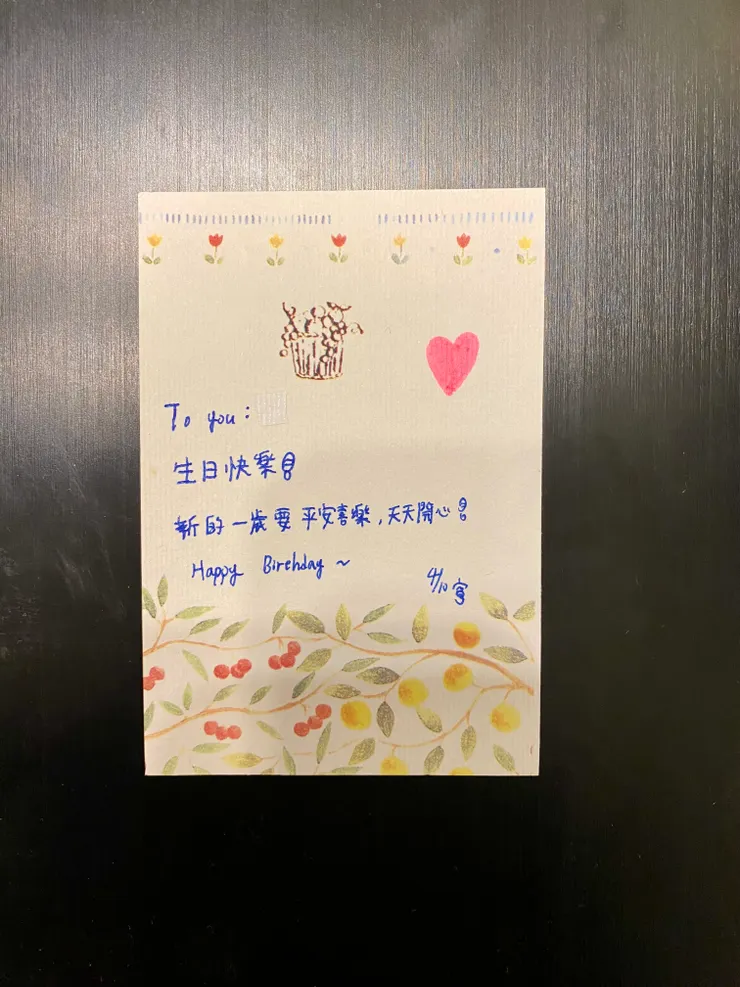 To you:
生日快樂!
新的一歲要平安喜樂,天天開心!
Happy Birehday ~
4/10 寫